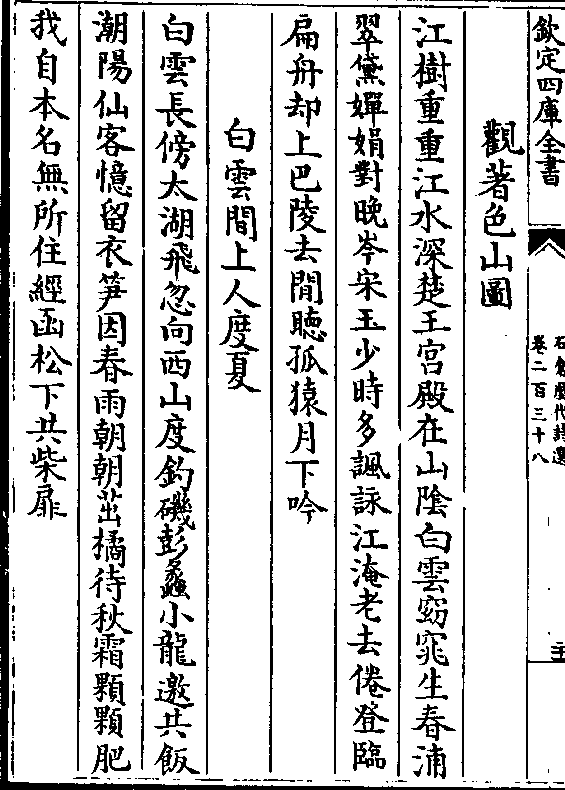 欽定四庫全書
石倉歷代詩選
卷二百三十八
觀著色山圖
江樹重重江水深楚王宮殿在山陰白雲窈窕生春浦
翠黛嬋娟對晚岑宋玉少時多諷詠江淹老去倦登臨
扁舟却上巴陵去閒聽孤猿月下吟
白雲間上人度夏
白雲長傍太湖飛忽向西山度釣磯彭蠡小龍邀共飯
潮陽仙客憶留衣笋因春雨朝朝茁橘待秋霜顆顆肥
我自本名無所住經函松下共柴扉